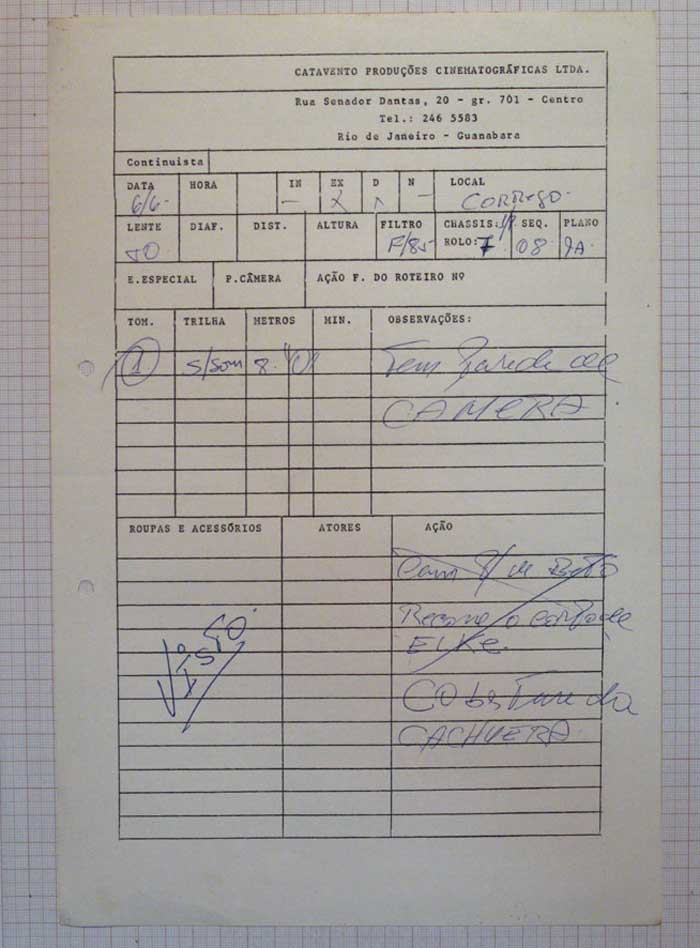 CATAVENTO PRODUÇÕES CINEMATOGRÁFICAS LTDA.
Rua Senador Dantas, 20 - gr. 701 - Centro
Tel.: 246 5583
Rio de Janeiro - Guanabara
Continuista
DATA HORA IN EX D N LOCAL
6/6- — X — CORREGO-
LENTE DIAF. DIST. ALTURA FILTRO CHASSIS: SEQ. PLANO
50 F/85 ROLO: 7 08 9A-
E.ESPECIAL P.CÂMERA AÇÃO F. DO ROTEIRO Nº
TOM. TRILHA METROS MIN. OBSERVAÇÕES:
1 S/SOM 8. Tem de
CAMERA
ROUPAS E ACESSÓRIOS ATORES AÇÃO
de
o corpo de
ELKE.
CObertura da
CACHUERA
VISTO.